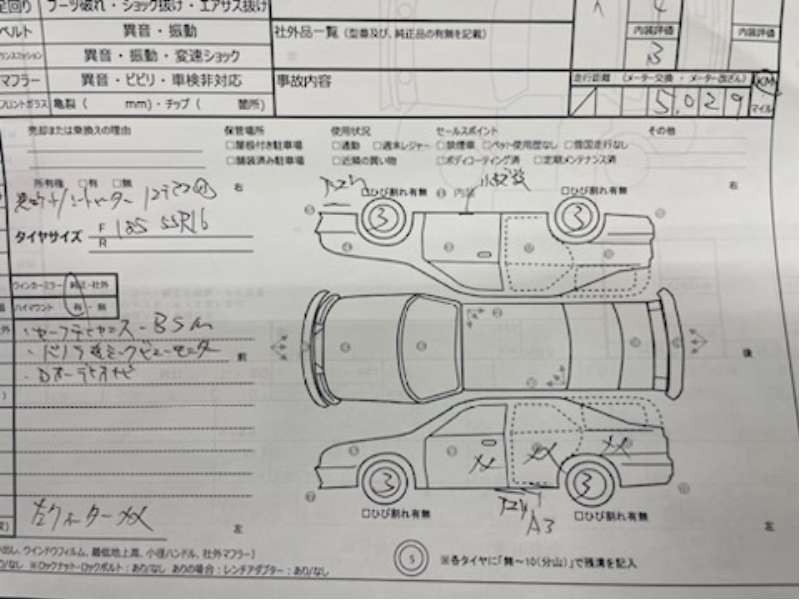 足回り ブーツ破れ・ショック抜け・エアサス抜け
ベルト 異音・振動
異音・振動・変速ショック
マフラー 異音・ビビリ・車検非対応
フロントガラス 亀裂( mm)・チップ( 箇所)
社外品一覧(型番及び、純正品の有無を記載)
事故内容
4
内装評価 内装評価
3
走行距離 (メーター交換・メーター改ざん) KM
5,029 マイル
売却または乗換えの理由 保管場所 使用状況 セールスポイント その他
□屋根付き駐車場 □通勤 □週末レジャー □禁煙車 □ペット使用歴なし □雪国走行なし
□舗装済み駐車場 □近隣の買い物 □ボディコーティング済 □定期メンテナンス済
所有権 □有 □無 右 □ひび割れ有無 内装 □ひび割れ有無 右
タイヤサイズ F 185 55R16
R
3 3
ウィンカーミラー 純正・社外
ハイマウント 有・無
BSM
前 後
3 3
□ひび割れ有無 A3 □ひび割れ有無
左 左
ウインドウフィルム、最低地上高、小径ハンドル、社外マフラー)
※ロックナット・ロックボルト:あり/なし ありの場合:レンチアダプター:あり/なし
5 ※各タイヤに「無~10(分山)」で残溝を記入